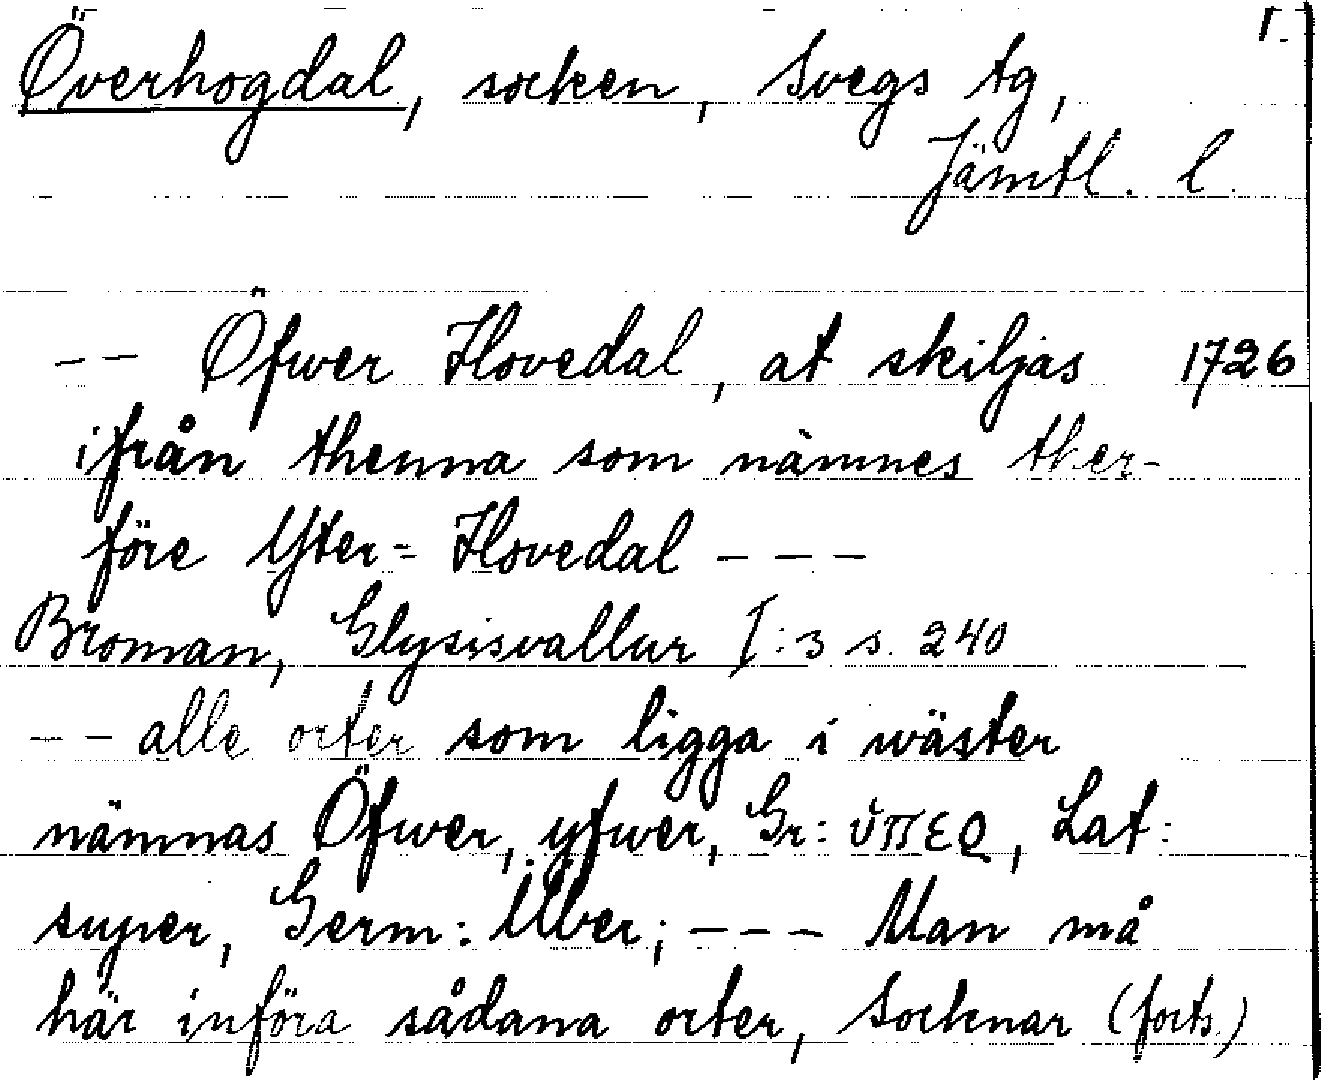 1.
Överhogdal, socken, Svegs tg,
Jämtl. l.
-- Öfwer Hovedal, at skiljas 1726
ifrån thenna som nämnes ther-
före Yter= Hovedal ---
Broman, Glysisvallur I:3 s. 240
-- alle orter som ligga i wäster
nämnas Öfwer, yfwer, Gr: ὑπερ, Lat:
super, Germ: Über; --- Man må
här införa sådana orter, Socknar (forts.)